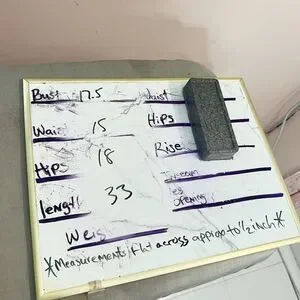 Bust 17.5
Waist
Wais 15
Hips
Hips 18
Rise
Inseam
length 33
Leg
Opening
Weig
*Measurements flat across approx to 1/2 inch*